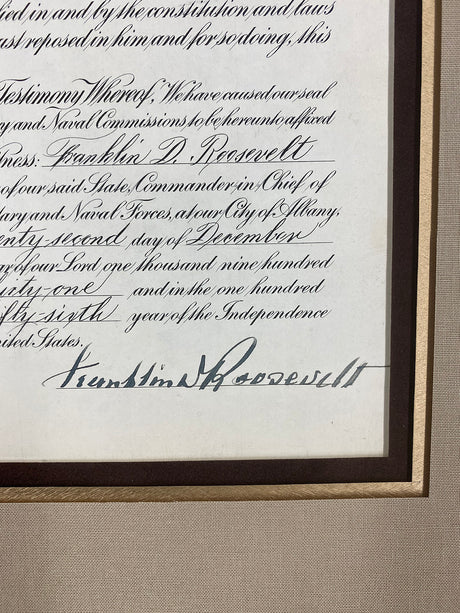 ied in and by the constitution and laws
ust reposed in him and for so doing, this
Testimony Whereof, We have caused our seal
y and Naval Commissions to be hereunto affixed
tness: Franklin D. Roosevelt
of our said State, Commander-in-Chief of
tary and Naval Forces, at our City of Albany,
enty-second day of December
ar of our Lord one thousand nine hundred
irty-one and in the one hundred
fty-sixth year of the Independence
nited States.
Franklin D Roosevelt